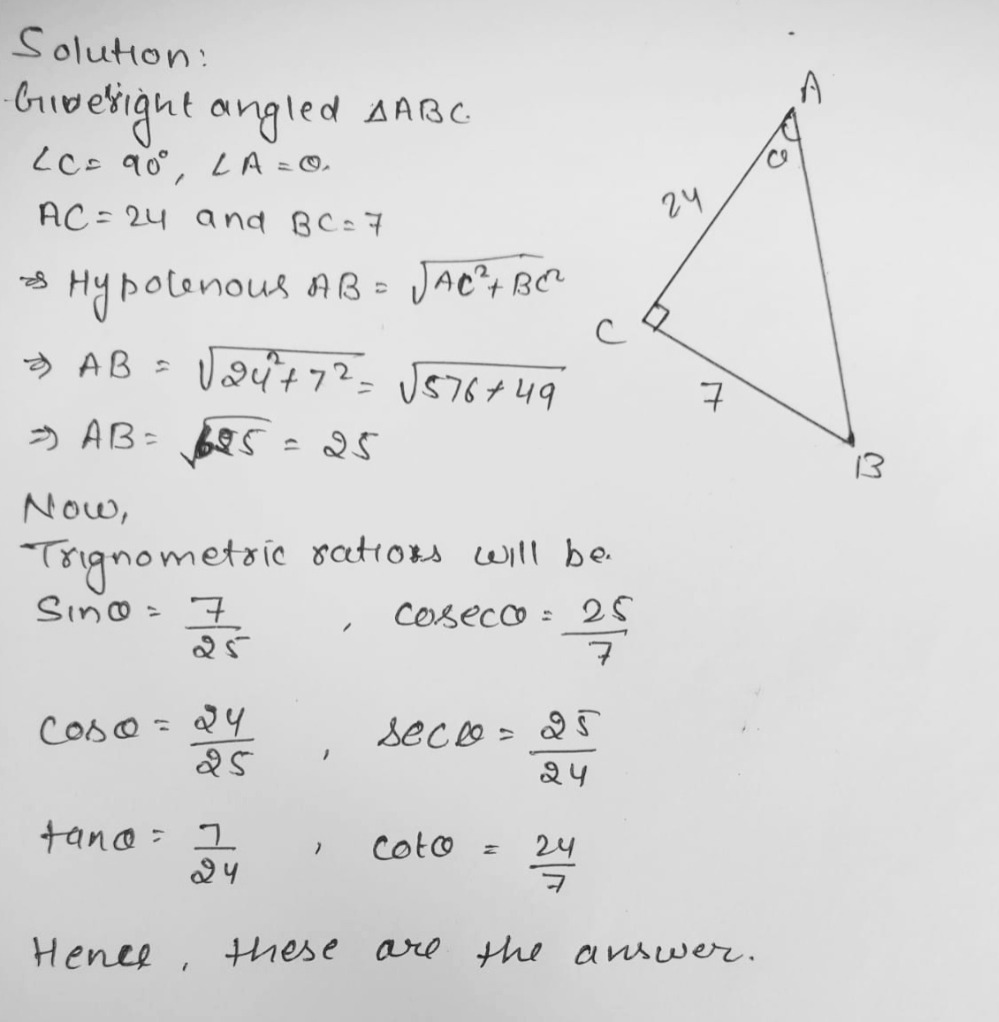 Solution:
Given right angled ΔABC.
∠C = 90°, ∠A = θ.
AC = 24 and BC = 7
⇒ Hypotenous AB = √AC² + BC²
⇒ AB = √24² + 7² = √576 + 49
⇒ AB = √625 = 25
Now,
Trignometric ratios will be.
Sinθ = 7/25 , cosecθ = 25/7
cosθ = 24/25 , secθ = 25/24
tanθ = 7/24 , cotθ = 24/7
Hence, these are the answer.
A
θ
24
C
7
B